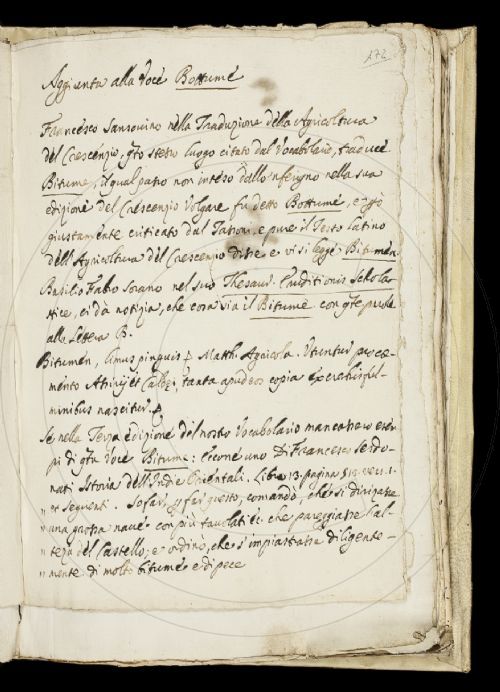 172
Aggiunta alla Voce Bottume
Francesco Sansovino nella Traduzione della Agricoltura
del Crescenzio, qto stesso luogo citato dal Vocabolario, traduce
Bitume, il qual passo non inteso dallo nferigno nella sua
edizione del Crescenzio Volgare fu detto Bottume, e ciò
giustamente criticato dal Tassoni, e pure il Testo latino
dell'Agricoltura del Crescenzio dice e vi si legge Bitumen.
Basilio Fabro Sorano nel suo Thesaur. Eruditionis Schola-
stice, ci dà notizia, che cosa sia il Bitume con qte parole
alla lettera B.
Bitumen, limus pinguis Matthi Agricola. Utuntur pro cæ-
mento Assirij et Caldei, tanta apud eos copia ex crebris ful-
minibus nascitur.
Se nella Terza edizione del nostro Vocabolario mancassero esem
pi di qta Voce Bitume: Eccone uno Di Francesco Serdo-
nati Istoria dell'Indie Orientali. Libro 13. pagina 512. vers. 1.
et seguenti. Sofar, far questo, comandò, che si dirizzasse
una grossa nave con più tavolati che pareggiasse l'al-
tezza del Castello; e ordinò, che s'impiastrasse diligente-
mente di molto bitume e di pece